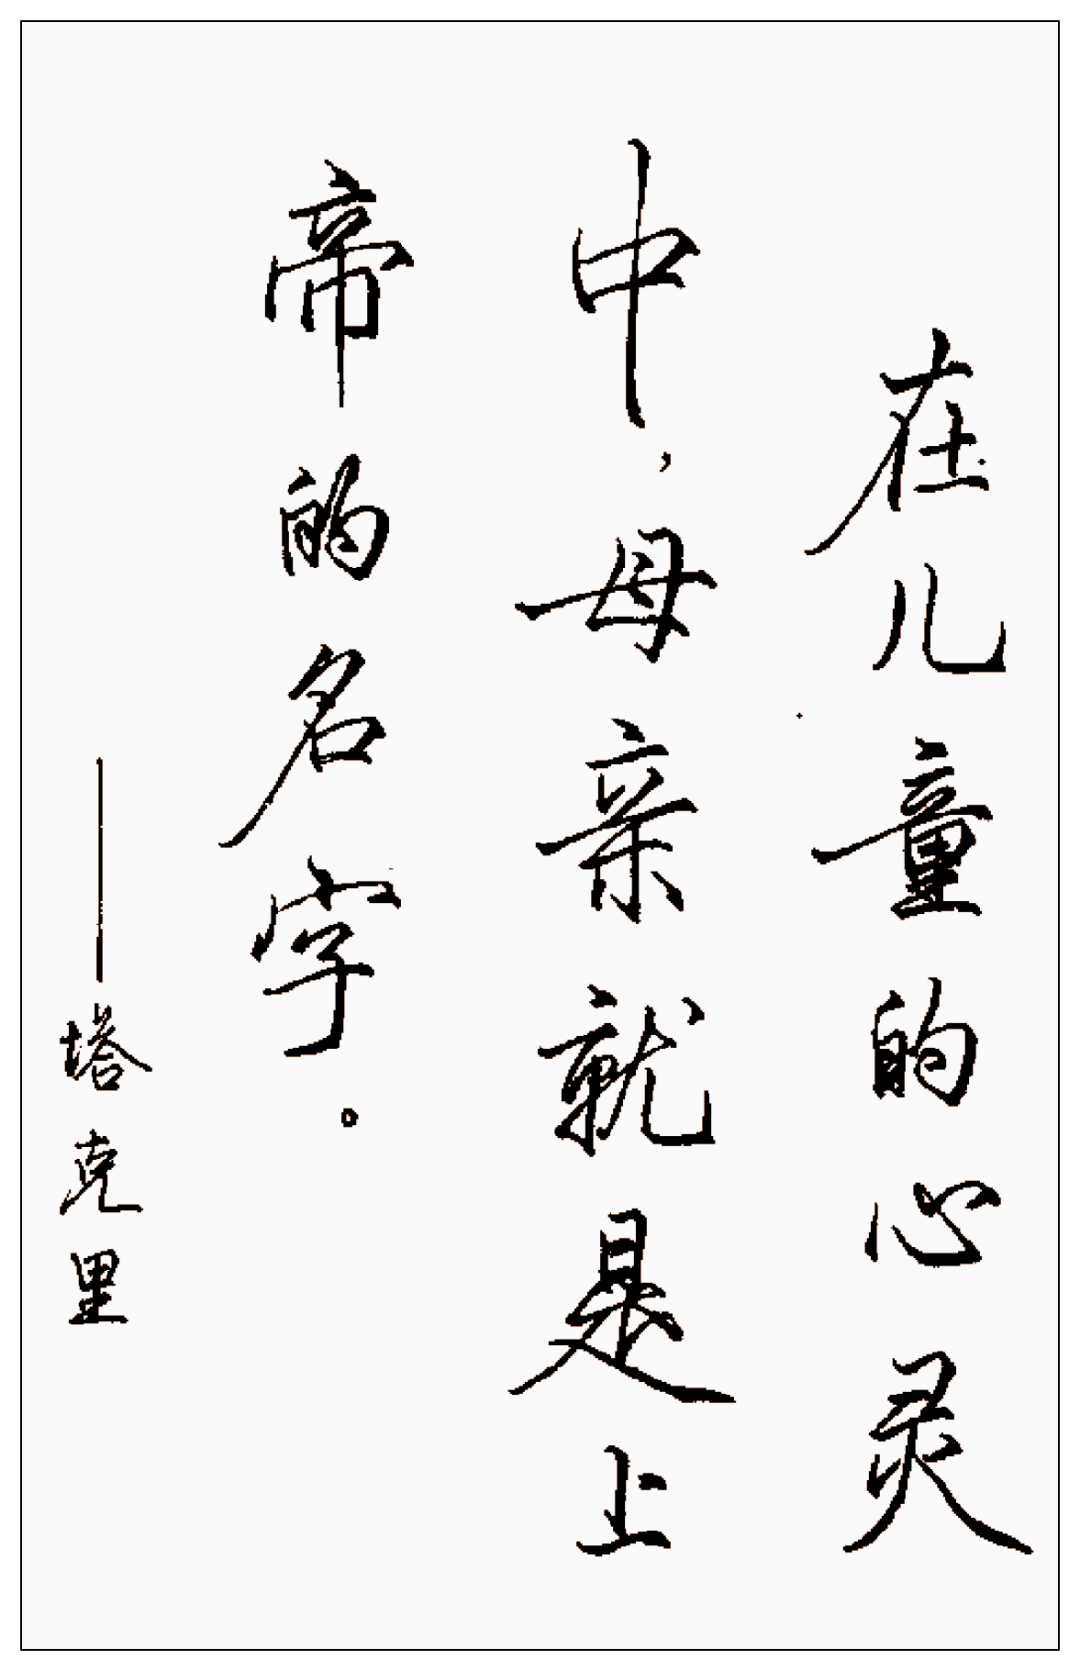 在儿童的心灵
中，母亲就是上
帝的名字。
——塔克里